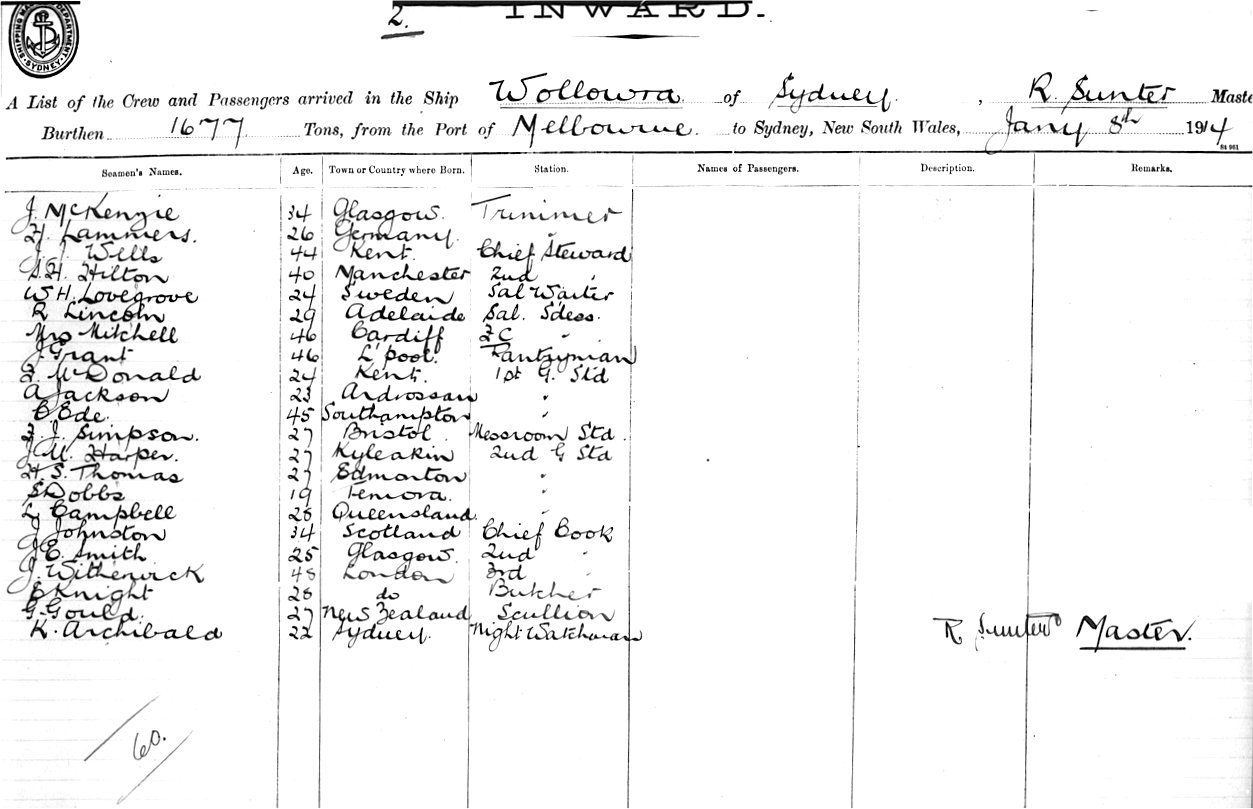 2.
INWARD.
SHIPPING MA DEPARTMENT. SYDNEY.
A List of the Crew and Passengers arrived in the Ship Wollowra of Sydney, R. Sunter Maste
Burthen 1677 Tons, from the Port of Melbourne to Sydney, New South Wales, Jany 8th 1914
St 961
Seamen's Names. Age. Town or Country where Born. Station. Names of Passengers. Description. Remarks.
J. McKenzie 34 Glasgow. Trimmer
H. Lammers. 26 Germany. "
J. J. Wells 44 Kent. Chief Steward
S. H. Hilton 40 Manchester 2nd "
W H. Lovegrove 24 Sweden Sal Waiter
R Lincoln 29 Adelaide Sal. Sdess.
Mrs Mitchell 46 Cardiff F C "
J Grant 46 L'pool. Pantryman
F. McDonald 24 Kent. 1st G. Std
A Jackson 23 Ardrossan "
C Ede. 45 Southampton "
F. J. Simpson. 27 Bristol. Messroom Std.
J M. Harper. 27 Kyleakin 2nd G Std
H. S. Thomas 27 Edmonton "
S Dobbs 19 Temora. "
L Campbell 28 Queensland. "
J Johnston 34 Scotland Chief Cook
J E. Smith 25 Glasgow. 2nd "
J. Witherwick 48 London 3rd "
E Knight 28 do Butcher
G. Gould. 27 New Zealand Scullion
K. Archibald 22 Sydney. Night Watchman
R Sunter Master.
60.